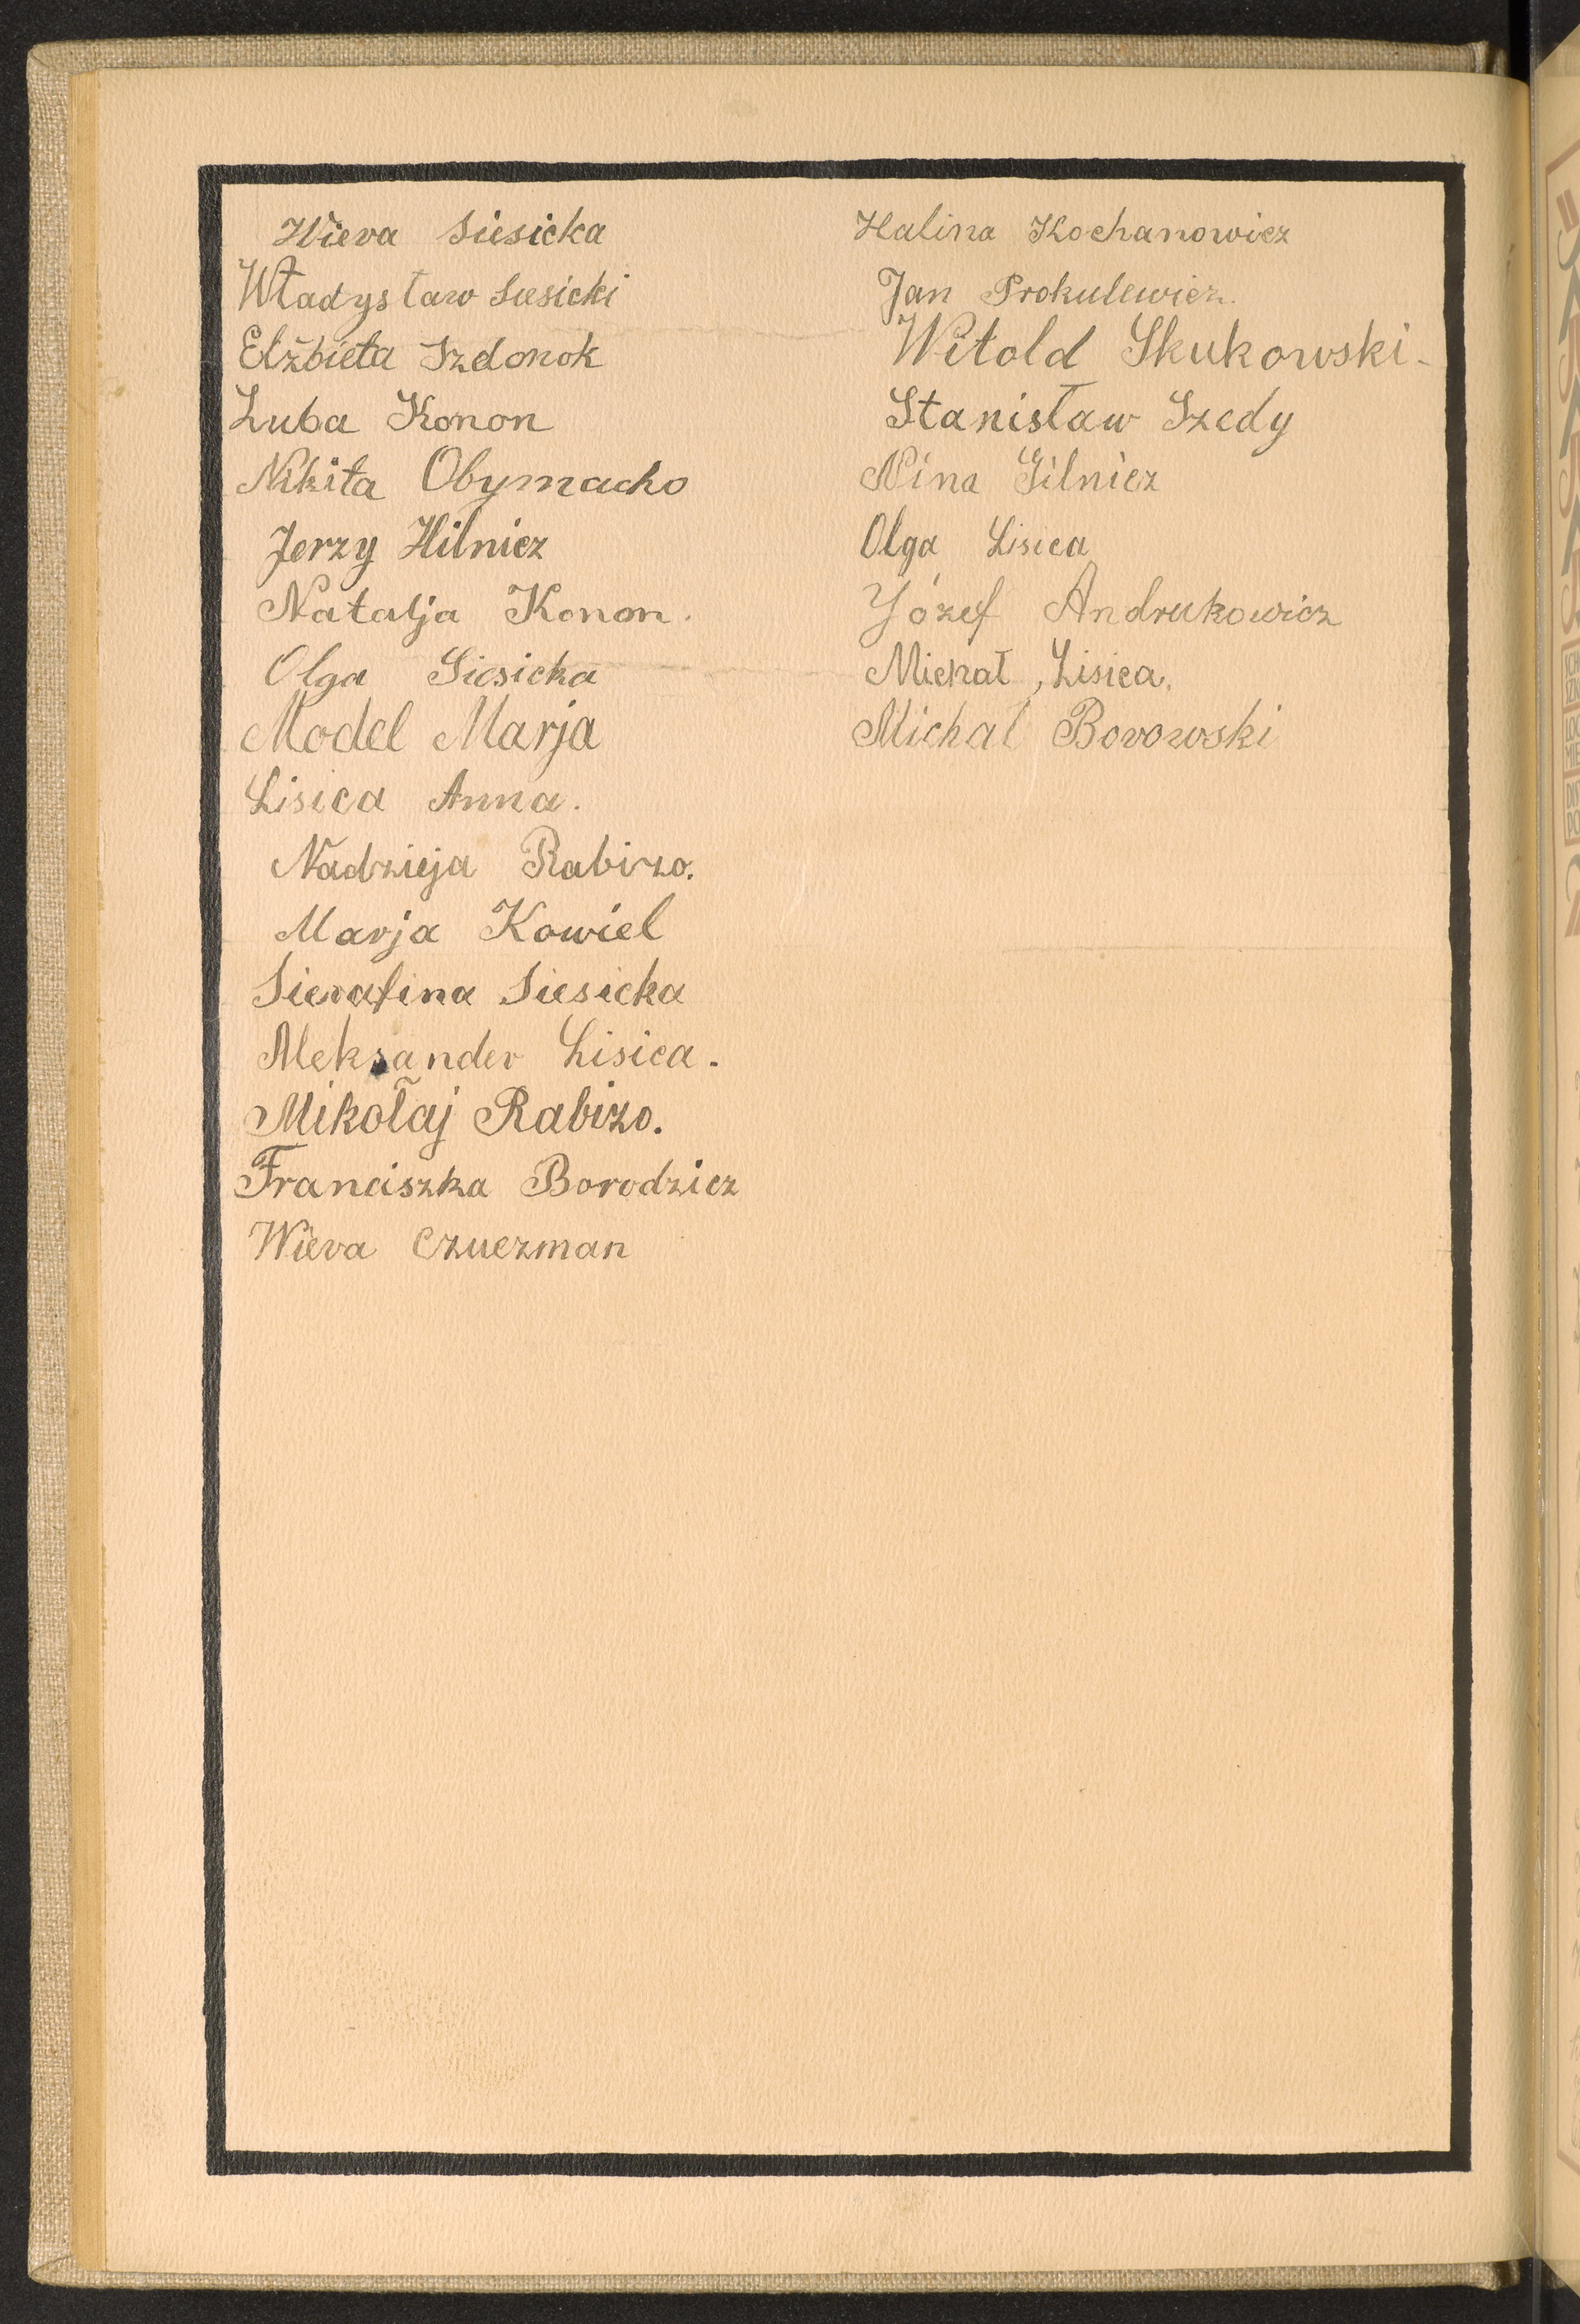 Wiera Siesicka
Władysław Siesicki
Elżbieta Szdonok
Luba Konon
Nikita Obymacho
Jerzy Hilnicz
Natalja Konon.
Olga Siesicka
Model Marja
Lisica Anna.
Nadzieja Rabizo.
Marja Kowiel
Sierafina Siesicka
Aleksander Lisica.
Mikołaj Rabizo.
Franciszka Borodzicz
Wiera Czuczman
Halina Kochanowicz
Jan Prokulewicz.
Witold Skukowski-
Stanisław Szedy
Nina Gilnicz
Olga Lisica
Józef Andrukowicz
Michał, Lisica.
Michał Borowski